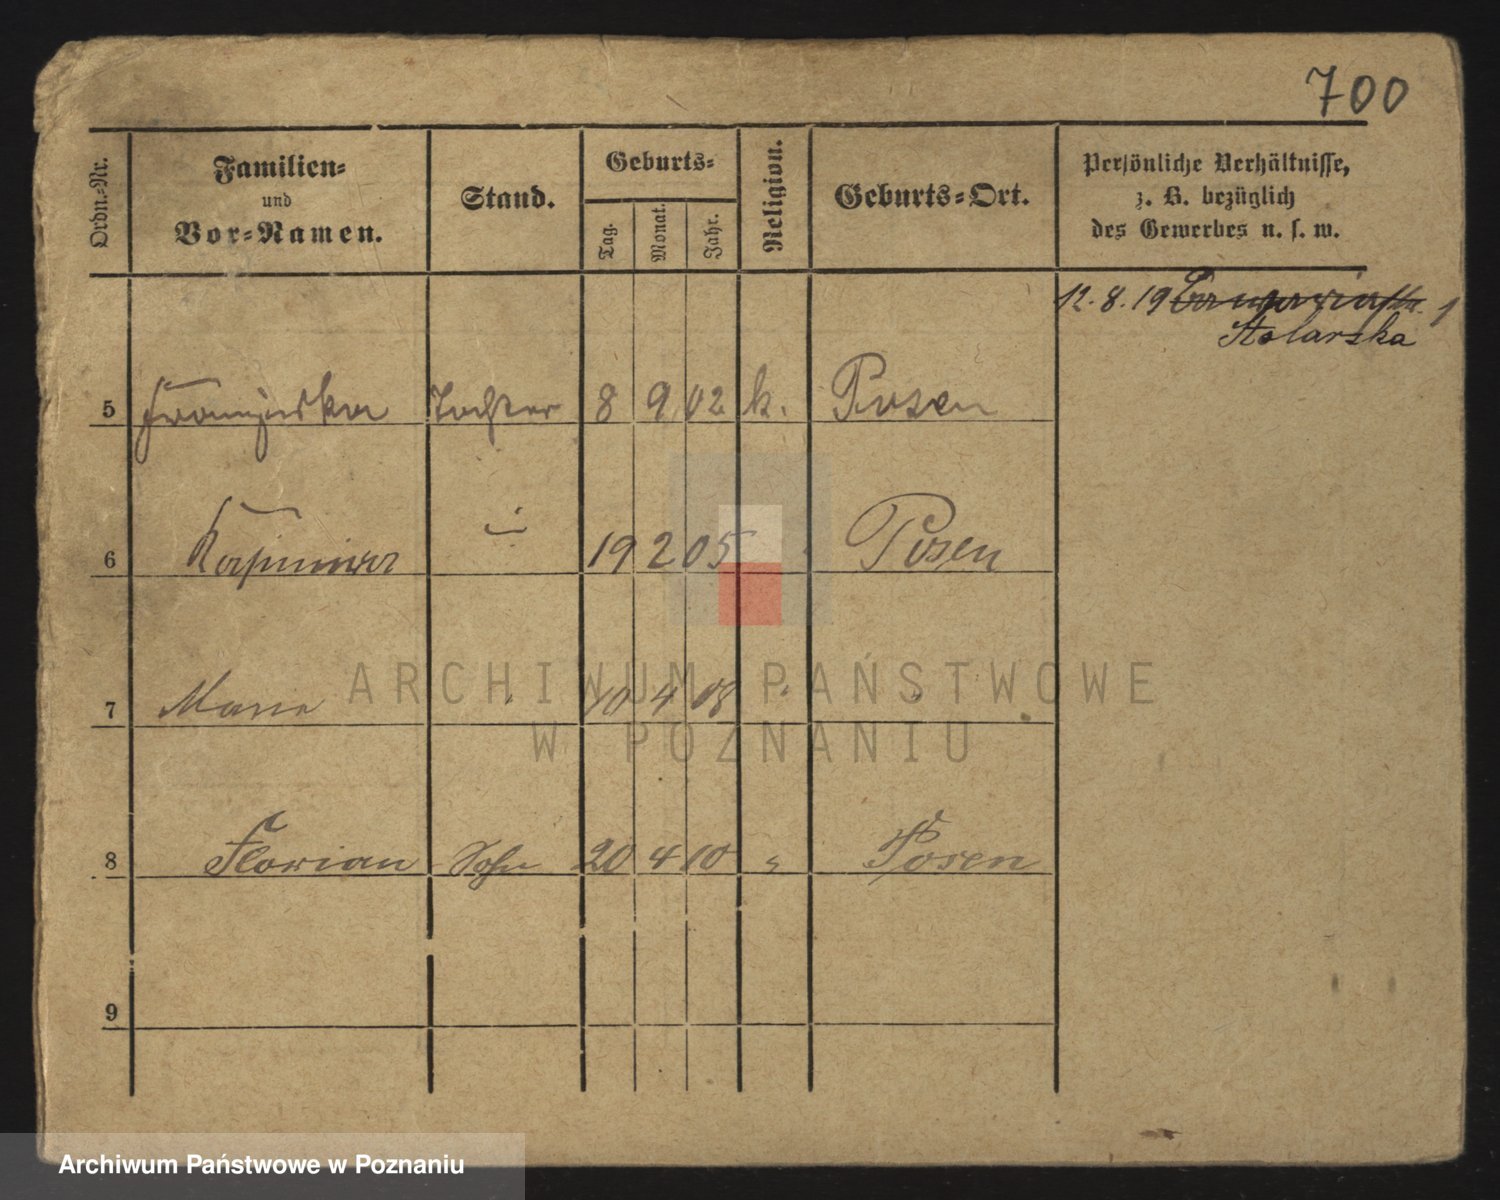 700
Ordn.-Nr.
Familien-
und
Vor-Namen.
Stand.
Geburts-
Tag.
Monat.
Jahr.
Religion.
Geburts-Ort.
Persönliche Verhältnisse,
z. B. bezüglich
des Gewerbes u. s. w.
12. 8. 19 1
Stolarska
5 Franziska Tochter 8 9 02 k. Posen
6 Kasimira " 19 2 05 " Posen
7 Marie " 10 4 08 " "
8 Florian Sohn 20 4 10 " Posen
9
ARCHIWUM PAŃSTWOWE
W POZNANIU
Archiwum Państwowe w Poznaniu